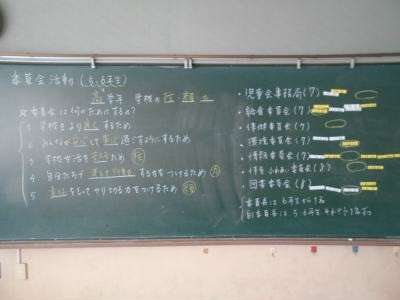 委員会活動 (5、6年生)
高学年 学校の柱・顔・力
☆委員会は何のためにするの?
1 学校をより良くするため
2 みんなが安心して楽しく過ごすようにするため
3 学校生活を支えるため 柱
4 自分たちで する力をつけるため 力
5 責任をもってやりぬく力をつけるため 顔
・児童会事務局(7)
・給食委員会(7)
・保健委員会(7)
・環境委員会(7)
・情報委員会(7)
・体育 ふれあい委員会(8)
・図書委員会(8)
・委員長は6年生から1名
・副委員長は5・6年生それぞれ1名ずつ